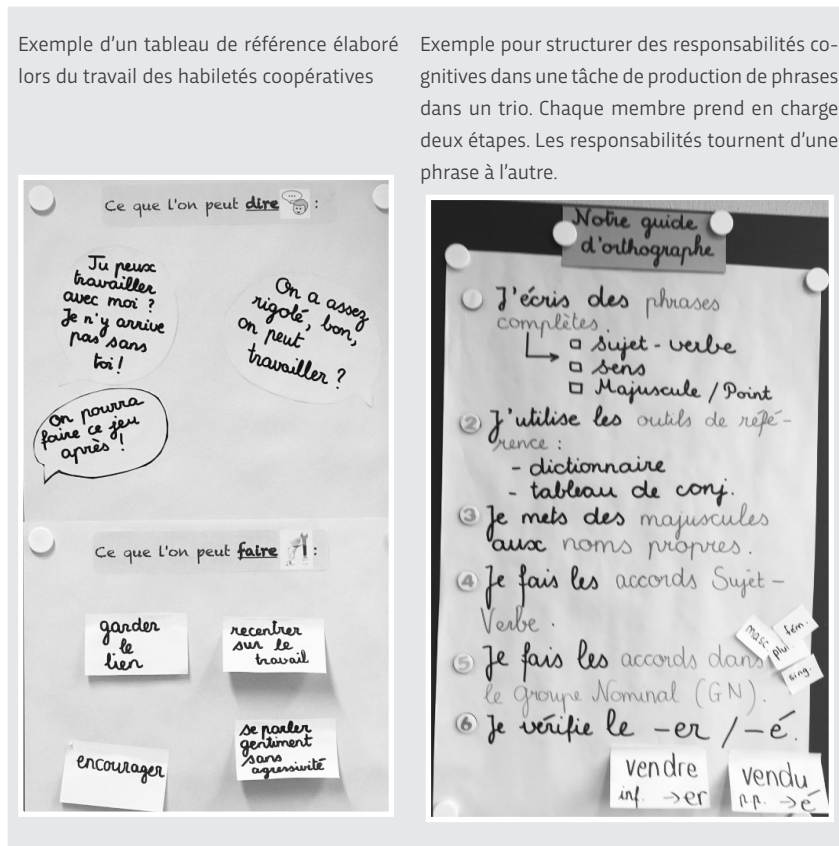 Exemple d'un tableau de référence élaboré
lors du travail des habiletés coopératives
Ce que l'on peut dire :
Tu peux
travailler
avec moi ?
Je n'y arrive
pas sans
toi !
On a assez
rigolé, bon,
on peut
travailler ?
On pourra
faire ce jeu
après !
Ce que l'on peut faire :
garder
le
lien
recentrer
sur le
travail
encourager
se parler
gentiment
sans
agressivité
Exemple pour structurer des responsabilités co-
gnitives dans une tâche de production de phrases
dans un trio. Chaque membre prend en charge
deux étapes. Les responsabilités tournent d'une
phrase à l'autre.
Notre guide
d'orthographe
J'écris des phrases
complètes.
Sujet - verbe
Sens
Majuscule / Point
2 J'utilise les outils de réfé-
rence :
- dictionnaire
- tableau de conj.
3 Je mets des majuscules
aux noms propres.
4 Je fais les accords Sujet -
Verbe.
5 Je fais les accords dans
le groupe Nominal (GN).
masc.
fém.
plu.
sing.
6 Je vérifie le -er / -é.
vendre
inf. →er
vendu
p.p. →é